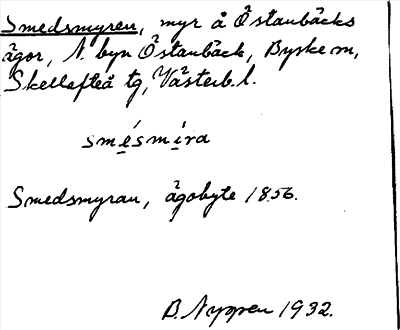 Smedsmyren, myr å Östanbäcks
ägor, N. byn Östanbäck, Byske m,
Skellefteå tg, Västerb. l.
smésmíra
Smedsmyran, ägobyte 1856.
B. Nygren 1932.